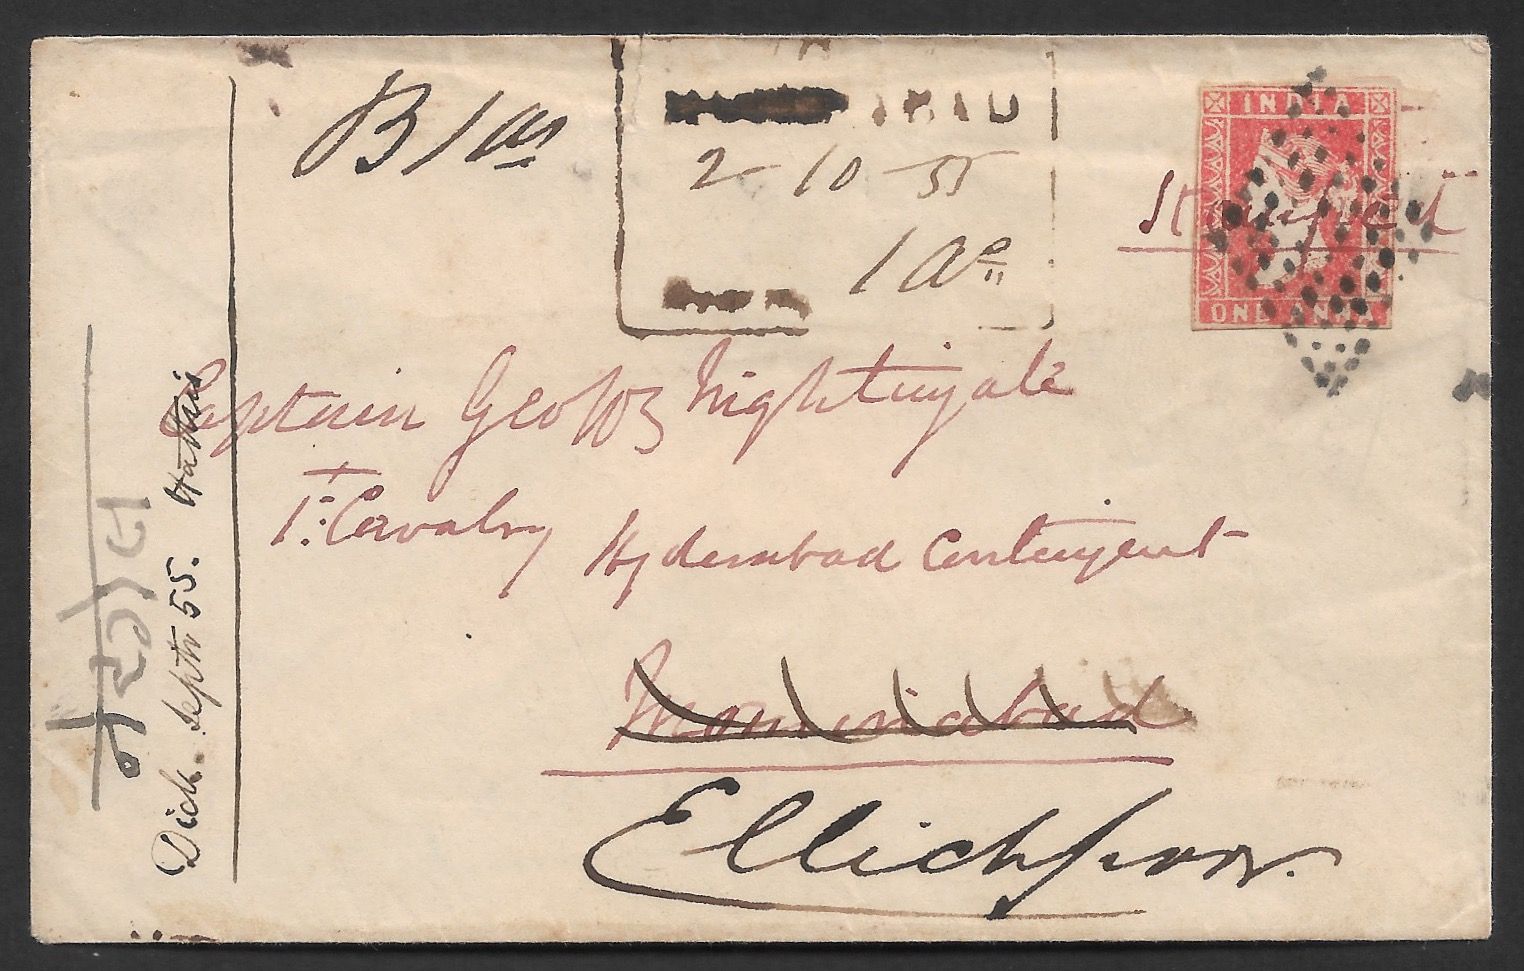 B 1 as
2-10-55
1 an
INDIA
ONE ANNA
Stamped
Captain Geo
Nightingale
1st Cavalry Hyderabad Contingent
Mominabad
Ellichpoor.
Dick. Septr 55.